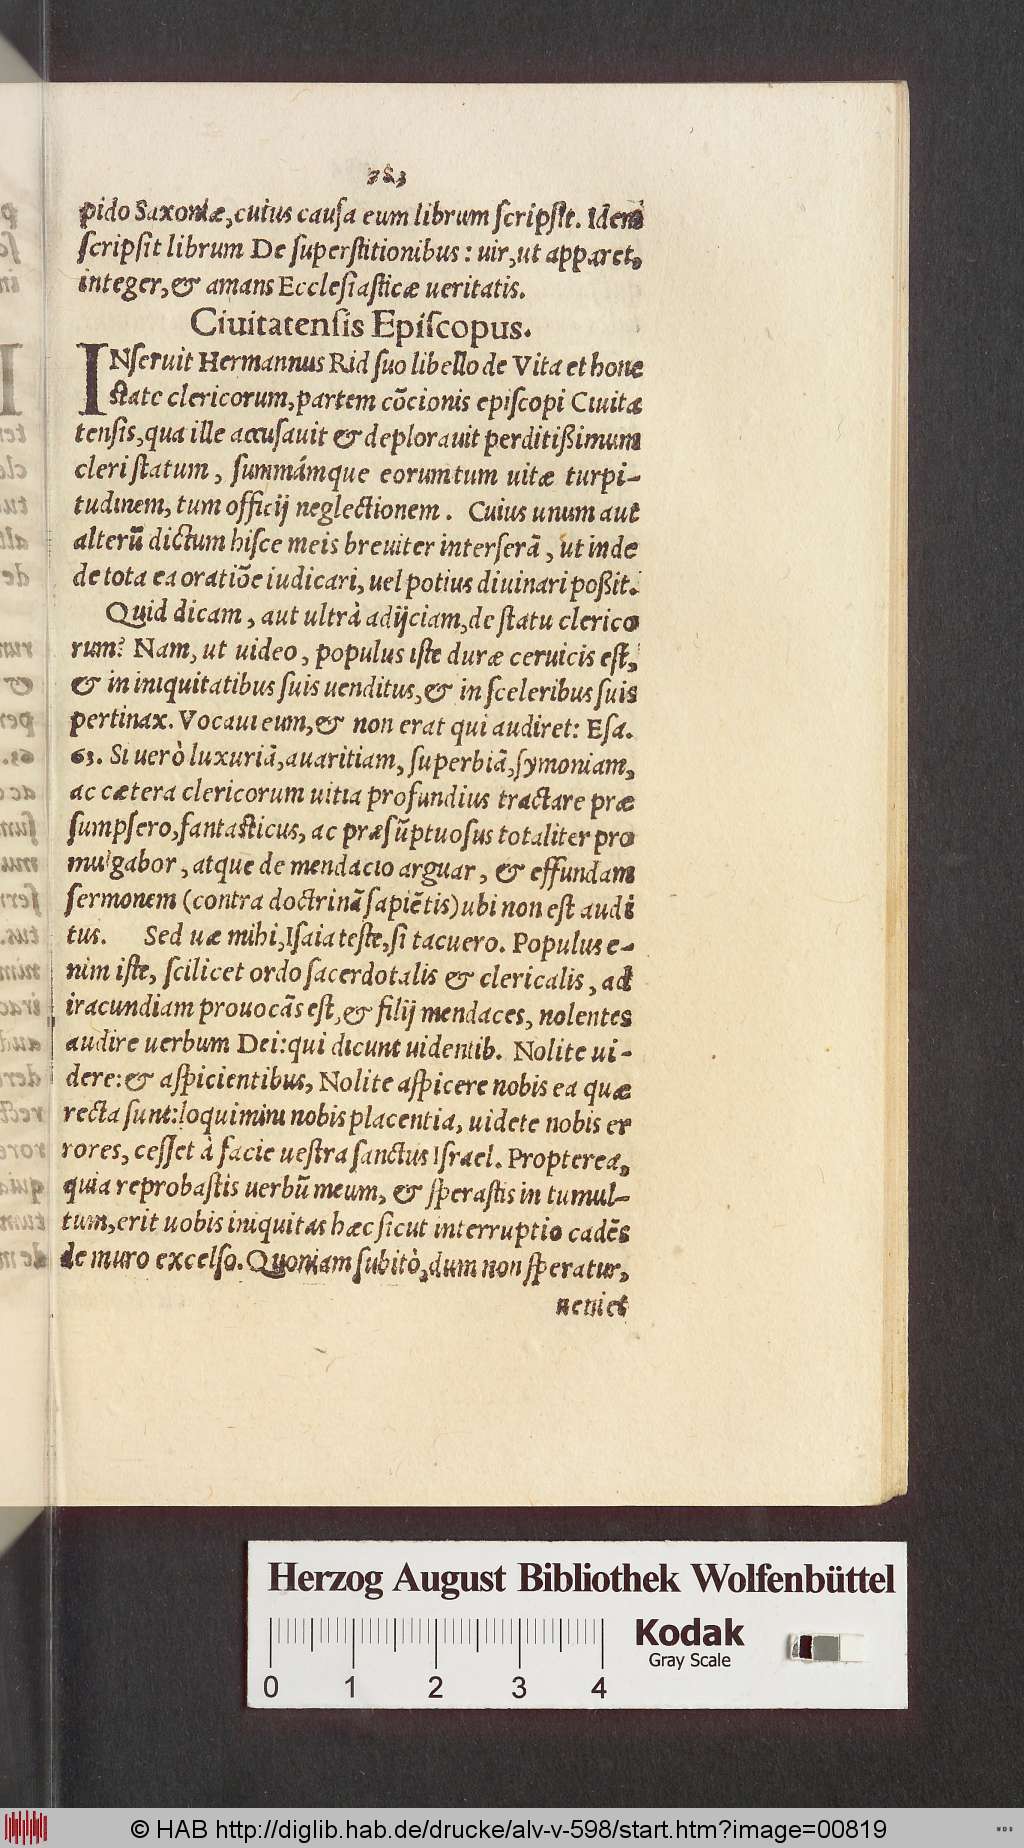 783
pido Saxoniæ, cuius causa eum librum scripsit. Idem
scripsit librum De superstitionibus: uir, ut apparet,
integer, & amans Ecclesiasticæ ueritatis.
Ciuitatensis Episcopus.
INseruit Hermannus Rid suo libello de Vita et hone
state clericorum, partem cōcionis episcopi Ciuita
tensis, qua ille accusauit & deplorauit perditißimum
cleri statum, summámque eorum tum uitæ turpi-
tudinem, tum officij neglectionem. Cuius unum aut
alterū dictum hisce meis breuiter interserā, ut inde
de tota ea oratiōe iudicari, uel potius diuinari poßit.
Quid dicam, aut ultrà adijciam, de statu clerico
rum? Nam, ut uideo, populus iste duræ ceruicis est,
& in iniquitatibus suis uenditus, & in sceleribus suis
pertinax. Vocaui eum, & non erat qui audiret: Esa.
63. Si uerò luxuriā, auaritiam, superbiā, symoniam,
ac cætera clericorum uitia profundius tractare præ
sumpsero, fantasticus, ac præsūptuosus totaliter pro
mulgabor, atque de mendacio arguar, & effundam
sermonem (contra doctrinā sapiētis) ubi non est audi
tus. Sed uæ mihi, Isaia teste, si tacuero. Populus e-
nim iste, scilicet ordo sacerdotalis & clericalis, ad
iracundiam prouocās est, & filij mendaces, nolentes
audire uerbum Dei: qui dicunt uidentib. Nolite ui-
dere: & aspicientibus, Nolite aspicere nobis ea quæ
recta sunt: loquimini nobis placentia, uidete nobis er
rores, cesset à facie uestra sanctus Israel. Propterea,
quia reprobastis uerbū meum, & sperastis in tumul-
tum, erit uobis iniquitas hæc sicut interruptio cadēs
de muro excelso. Quoniam subitò, dum non speratur,
ueniet
Herzog August Bibliothek Wolfenbüttel
Kodak
Gray Scale
0 1 2 3 4
© HAB http://diglib.hab.de/drucke/alv-v-598/start.htm?image=00819